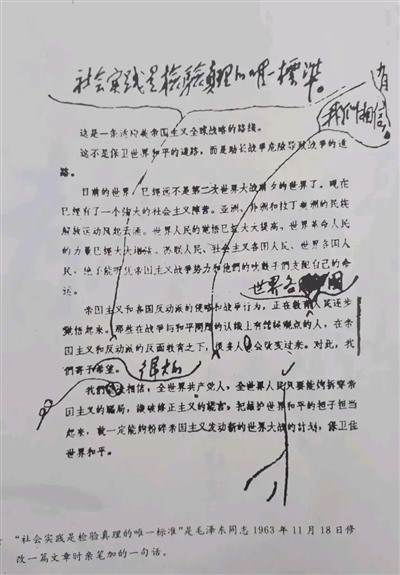 社会实践是检验真理的唯一標準。
有
我们相信，
这是一条适应美帝国主义全球战略的路线。
这不是保卫世界和平的道路，而是助长战争危险导致战争的道
路。
目前的世界，已经远不是第二次世界大战前夕的世界了。现在
已经有了一个强大的社会主义阵营。亚洲、非洲和拉丁美洲的民族
解放运动风起云涌。世界人民的觉悟已经大大提高，世界革命人民
的力量已经大大增强。苏联人民、社会主义各国人民、世界各国人
民，绝不能听凭帝国主义战争势力和他们的吹鼓手们支配自己的命
运。
世界各国
帝国主义和各国反动派的侵略和战争行为，正在教育人民逐步
觉悟起来。那些在战争与和平问题的认识上有错误观点的人，在帝
国主义和反动派的反面教育之下，很多人会改变过来。对此，我
们寄予希望。
很大的
我们相信，全世界共产党人，全世界人民只要能够拆穿帝
国主义的骗局，识破修正主义的谎言，把维护世界和平的担子担当
起来，就一定能够粉碎帝国主义发动新的世界大战的计划，保卫住
世界和平。
“社会实践是检验真理的唯一标准”是毛泽东同志 1963 年 11 月 18 日修
改一篇文章时亲笔加的一句话。